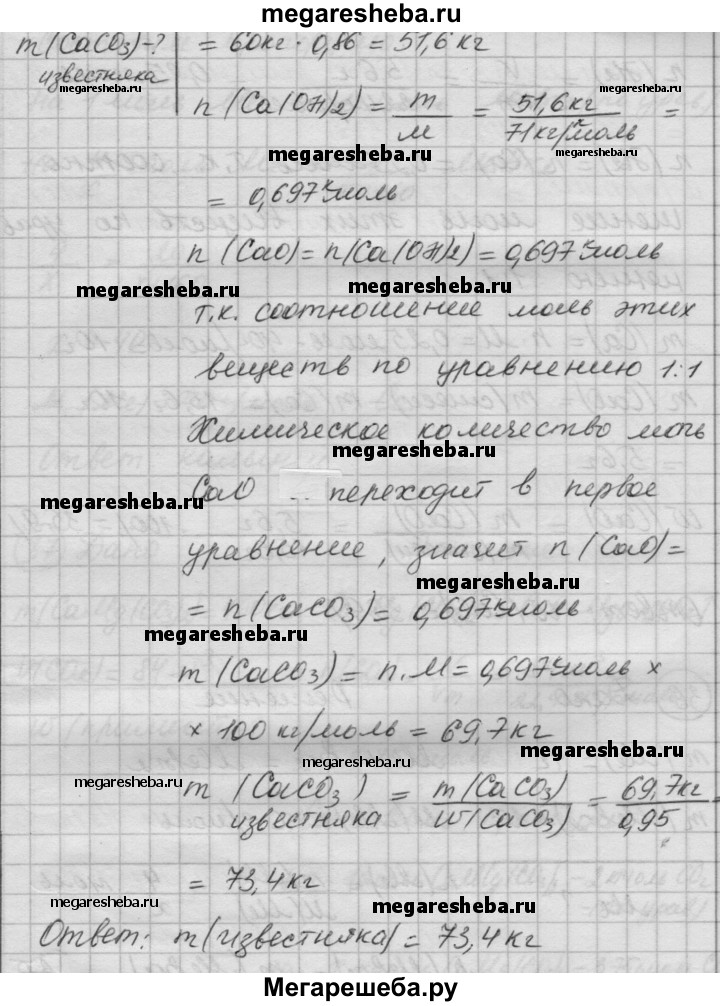 megaresheba.ru
m(CaCO3)-? = 60кг · 0,86 = 51,6 кг
известняка
megaresheba.ru megaresheba.ru
n(Ca(OH)2) = m/M = 51,6кг / 71 кг/кмоль =
megaresheba.ru megaresheba.ru
= 0,697 кмоль
n(CaO) = n(Ca(OH)2) = 0,697 кмоль
megaresheba.ru megaresheba.ru
т.к. соотношение моль этих
веществ по уравнению 1:1
Химическое количество моль
megaresheba.ru
megaresheba.ru
CaO переходит в первое
уравнение, значит n(CaO)=
megaresheba.ru
= n(CaCO3) = 0,697 кмоль
megaresheba.ru
m(CaCO3) = n.M = 0,697 кмоль ×
× 100 кг/моль = 69,7 кг
megaresheba.ru
megaresheba.ru
megaresheba.ru
m(CaCO3) известняка = m(CaCO3) / w(CaCO3) = 69,7кг / 0,95 =
= 73,4 кг
megaresheba.ru
megaresheba.ru
Ответ: m(известняка) = 73,4 кг
Мегарешеба.ру